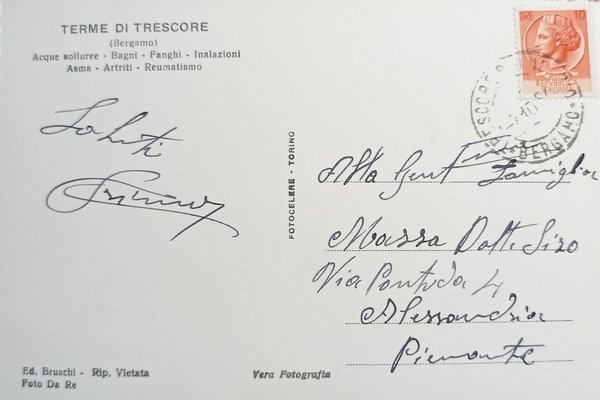 TERME DI TRESCORE
(Bergamo)
Acque solfuree - Bagni - Fanghi - Inalazioni
Asma - Artriti - Reumatismo
Saluti
Ed. Bruschi - Rip. Vietata
Foto Da Re
Vera Fotografia
FOTOCELERE - TORINO
LIRE 10
REPVBBLICA
ITALIANA
BERGAMO
Alla Gent.ma Famiglia
Massa Dott.
Via
4
Alessandria
Piemonte